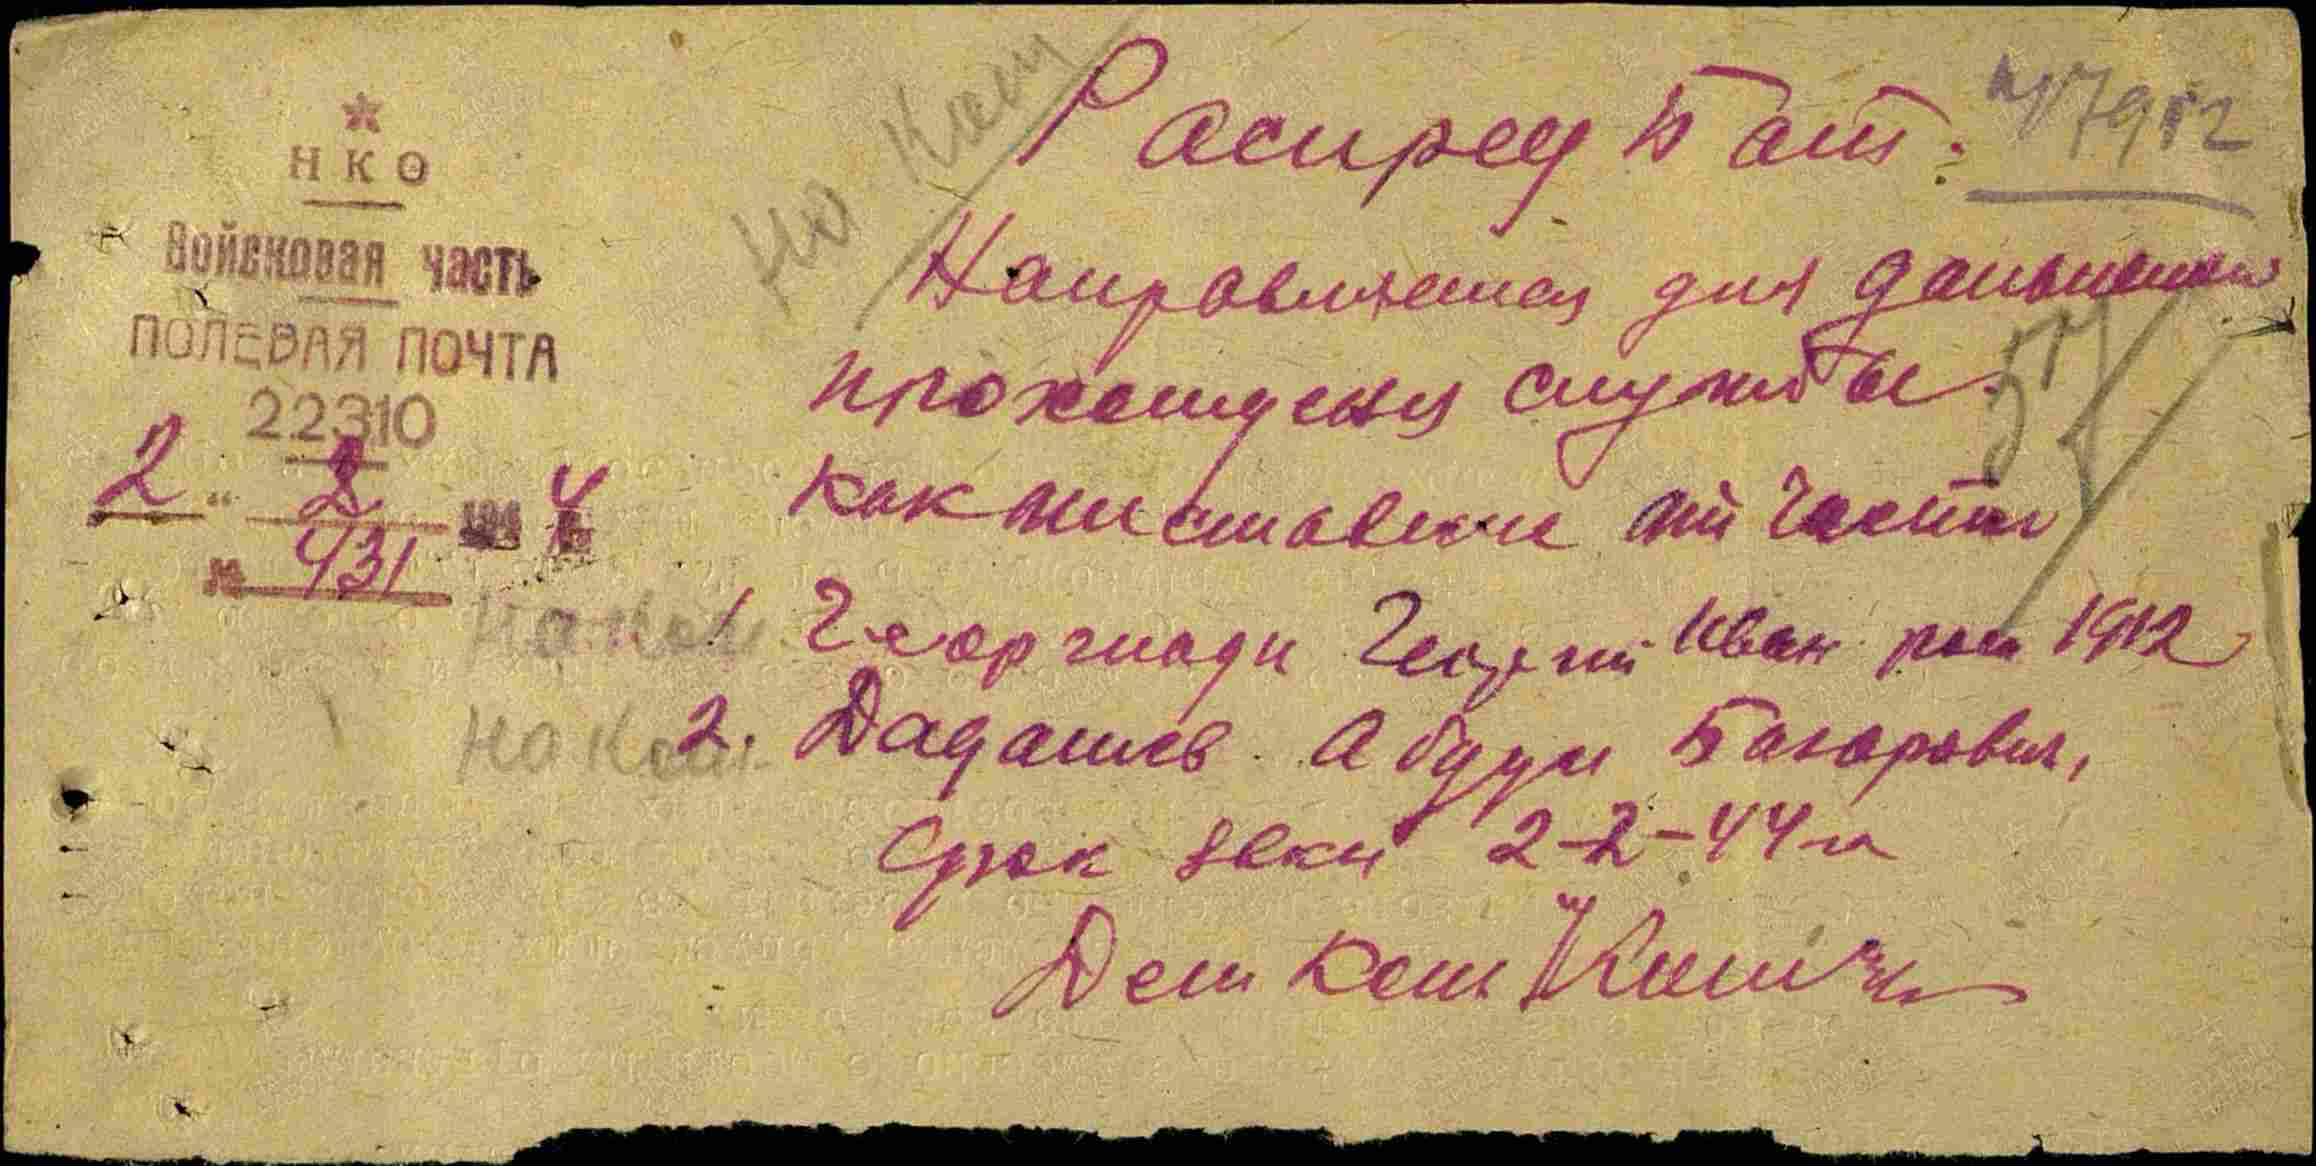 НКО
Войсковая часть
ПОЛЕВАЯ ПОЧТА
22310
2 " 2 194 4
№ 431
На Ком
Распред Бат.
Направляется для дальнейшей
прохождения службы.
как отставшие от части
1 Георгиади Георгий Иван рож 1912
2. Дадашев Абдул Багарович,
Срок явки 2-2-44 г